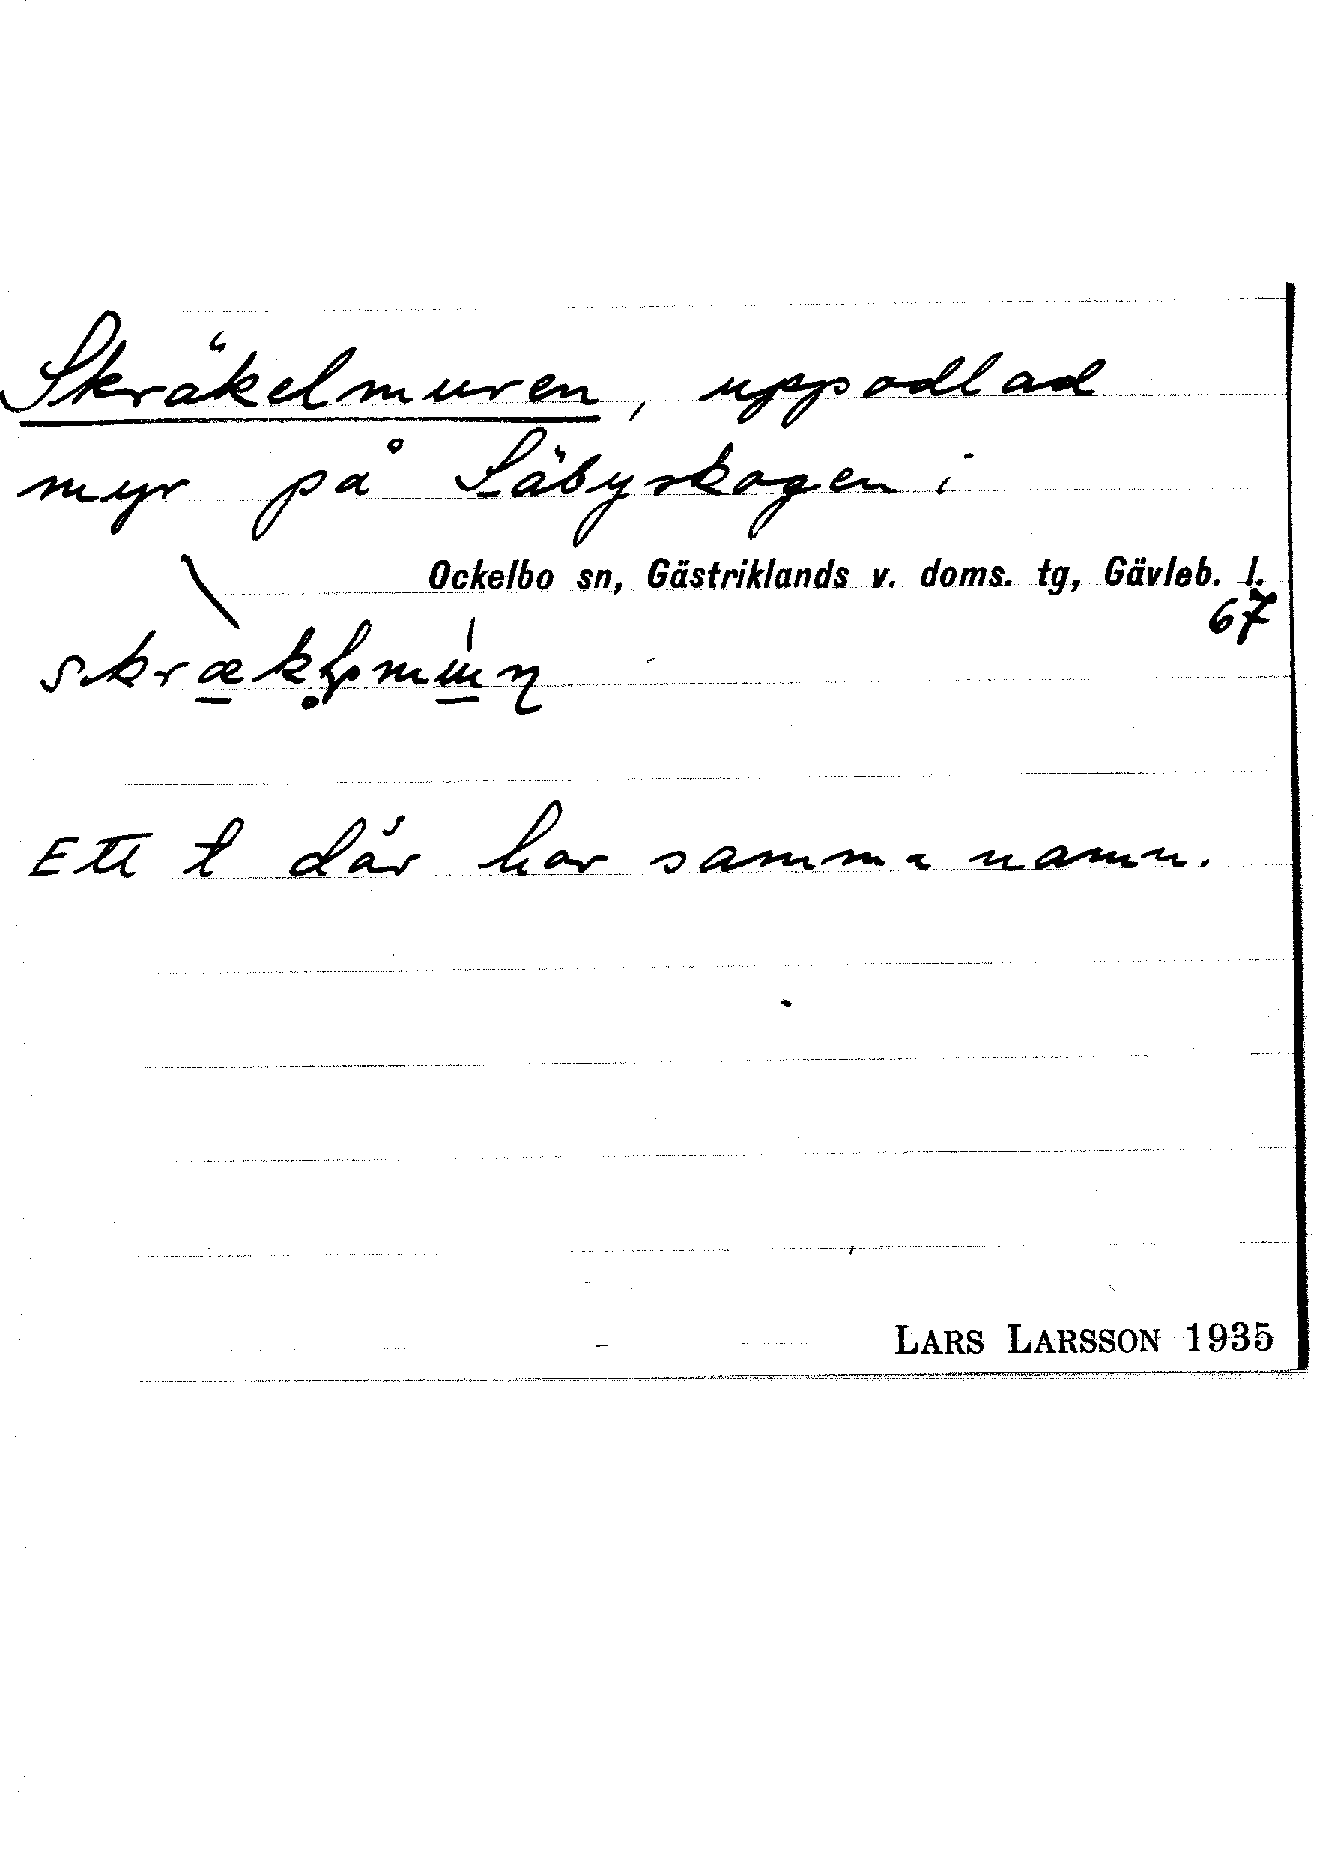 Skräkelmuren, uppodlad
myr på Säbyskogen i
Ockelbo sn, Gästriklands v. doms. tg, Gävleb. l.
67
Ett t där har samma namn.
LARS LARSSON 1935